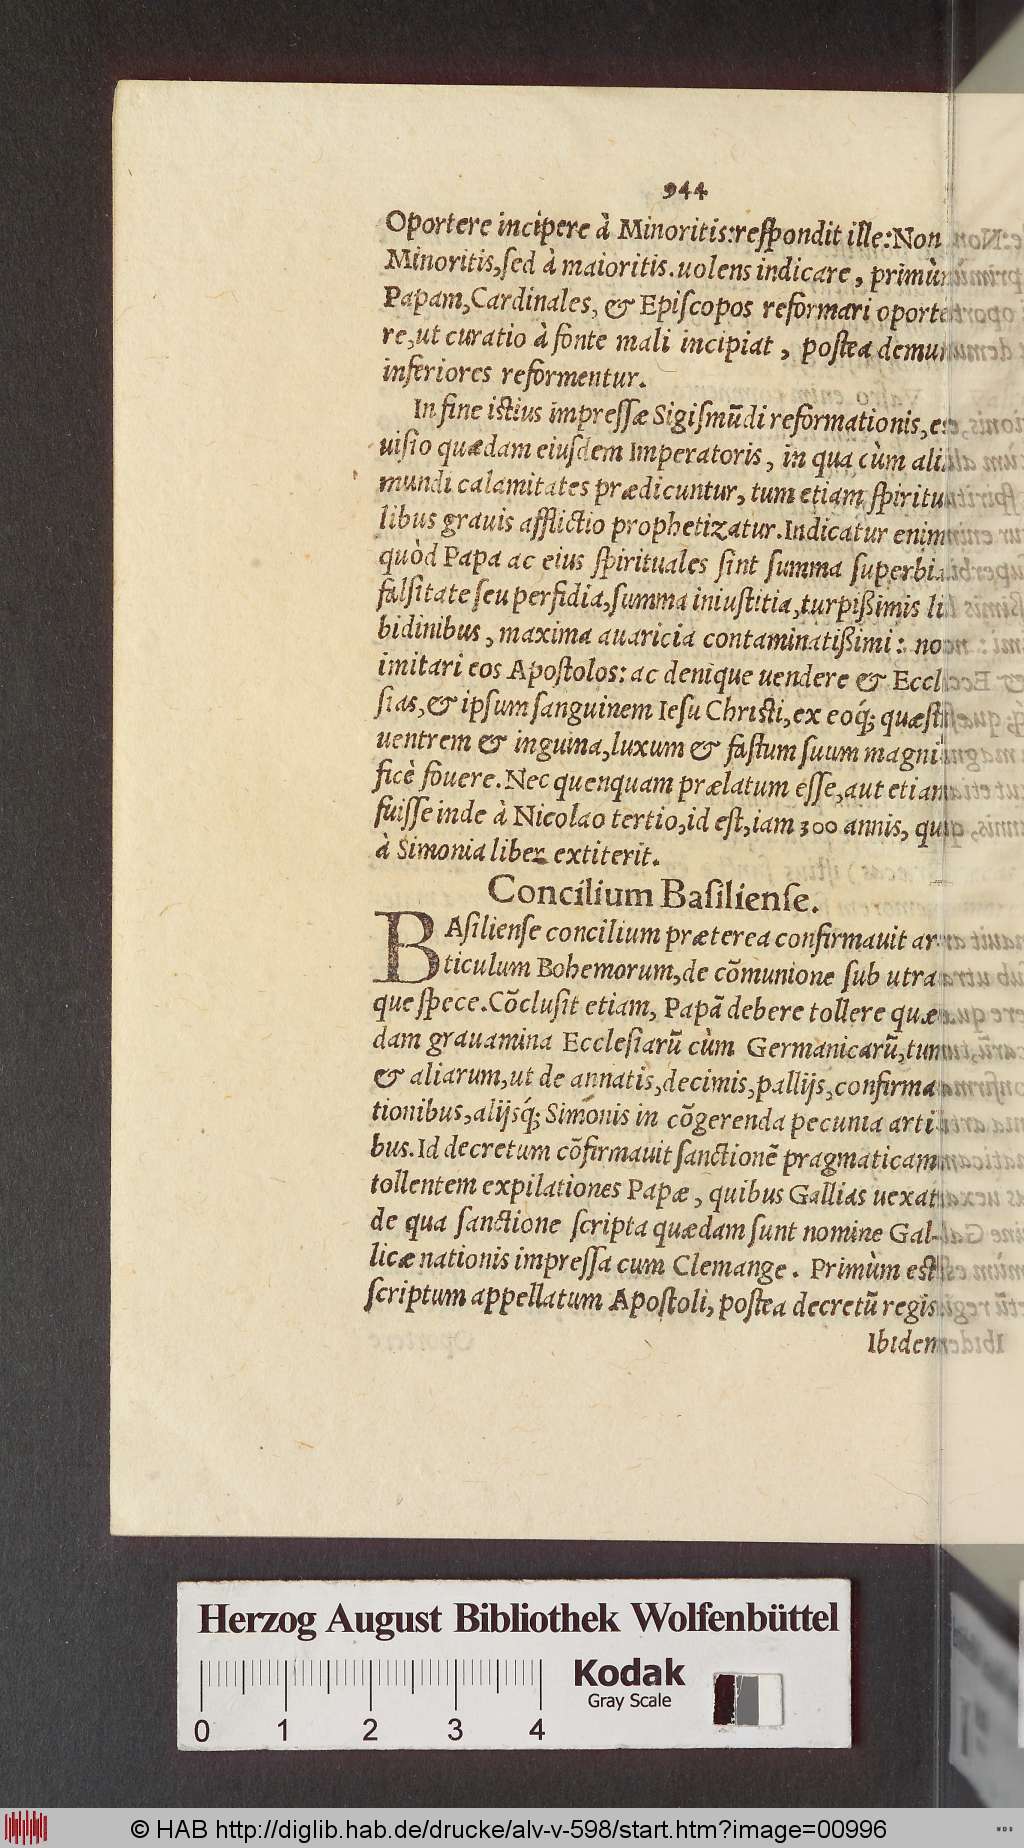 944
Oportere incipere à Minoritis:reſpondit ille:Non
Minoritis,ſed à maioritis.uolens indicare, primùm
Papam,Cardinales, & Epiſcopos reformari oporte
re,ut curatio à fonte mali incipiat, poſtea demum
inferiores reformentur.
In fine iſtius impreſſæ Sigiſmūdi reformationis,eſt
uiſio quædam eiuſdem Imperatoris, in qua cùm aliæ
mundi calamitates prædicuntur, tum etiam ſpiritua
libus grauis afflictio prophetizatur.Indicatur enim
quòd Papa ac eius ſpirituales ſint ſumma ſuperbia
falſitate ſeu perfidia,ſumma iniuſtitia,turpißimis li
bidinibus, maxima auaricia contaminatißimi: non
imitari eos Apoſtolos: ac denique uendere & Eccle
ſias,& ipſum ſanguinem Ieſu Chriſti,ex eoq́; quæſtu
uentrem & inguina,luxum & faſtum ſuum magni
ficè fouere.Nec quenquam prælatum eſſe,aut etiam
fuiſſe inde à Nicolao tertio,id eſt,iam 300 annis, qui
à Simonia liber extiterit.
Concilium Baſilienſe.
BAſilienſe concilium præterea confirmauit ar
ticulum Bohemorum,de cōmunione ſub utra
que ſpece.Cōcluſit etiam, Papā debere tollere quæ
dam grauamina Eccleſiarū cùm Germanicarū,tum
& aliarum,ut de annatis,decimis,pallijs,confirma
tionibus,alijsq́; Simonis in cōgerenda pecunia arti
bus.Id decretum cōfirmauit ſanctionē pragmaticam
tollentem expilationes Papæ, quibus Gallias uexat
de qua ſanctione ſcripta quædam ſunt nomine Gal-
licæ nationis impreſſa cum Clemange. Primùm eſt
ſcriptum appellatum Apoſtoli, poſtea decretū regis
Ibidem
Herzog August Bibliothek Wolfenbüttel
Kodak
Gray Scale
0 1 2 3 4
© HAB http://diglib.hab.de/drucke/alv-v-598/start.htm?image=00996